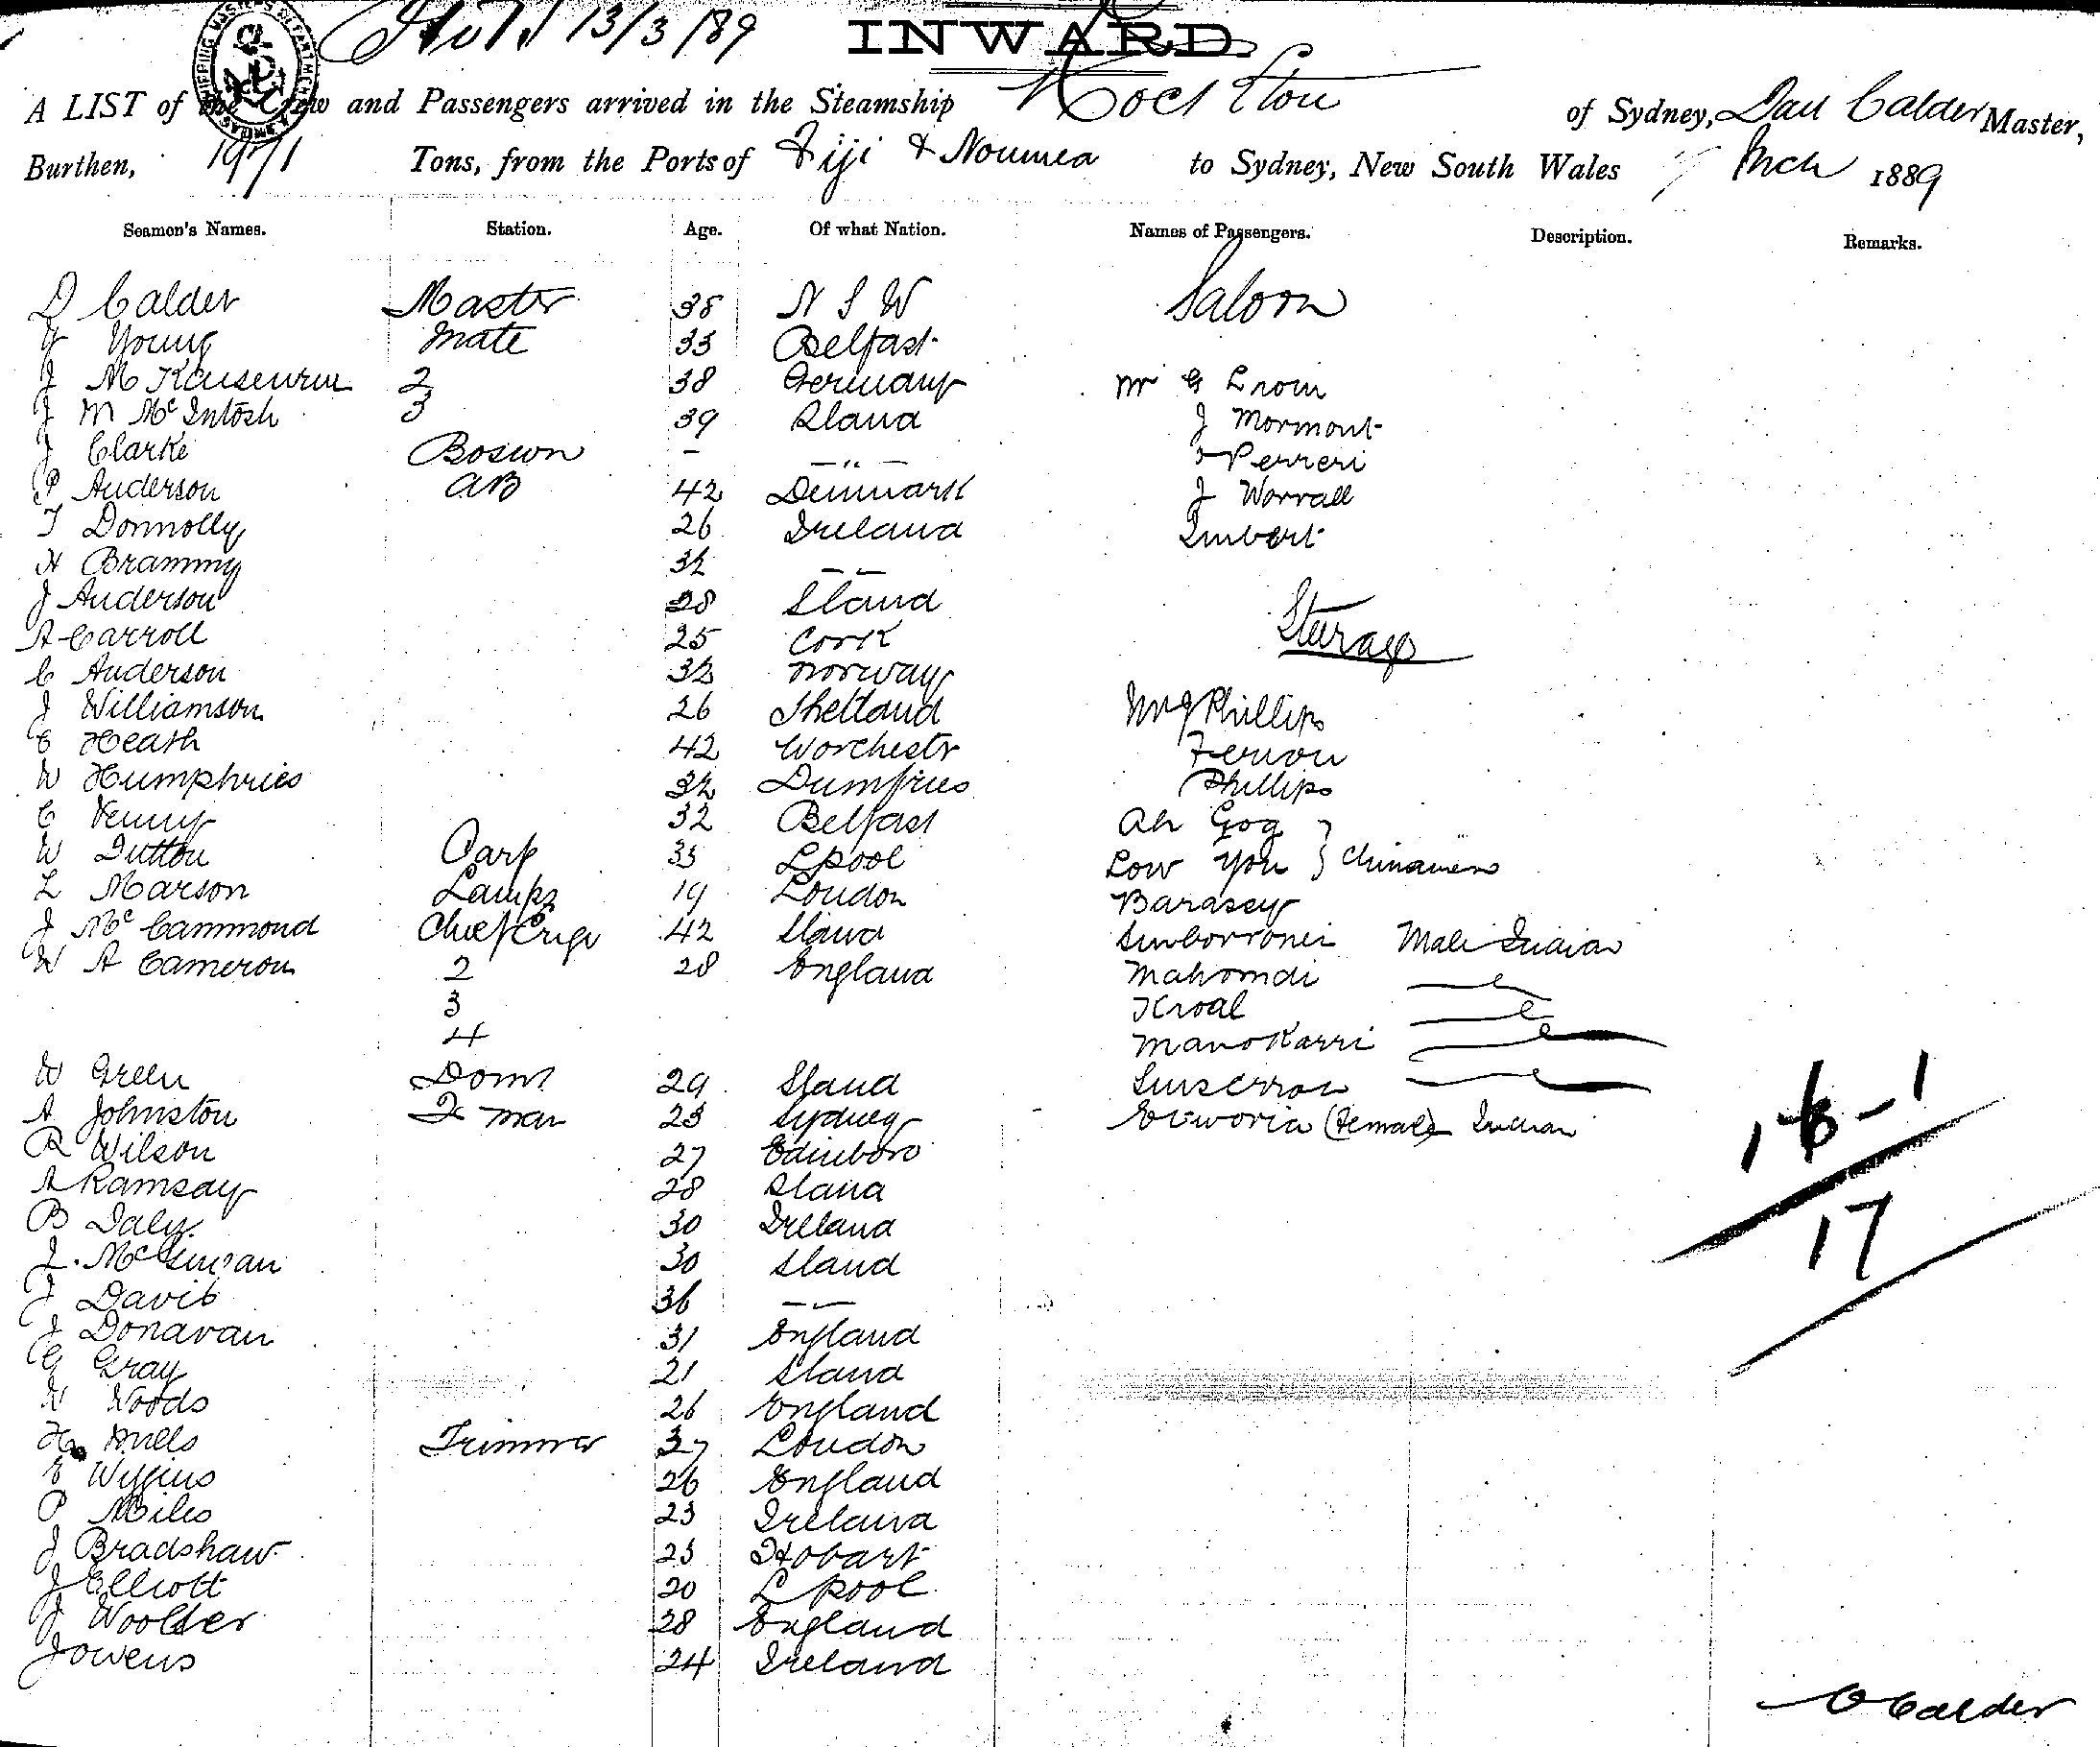 13/3/89 INWARD.
A LIST of the Crew and Passengers arrived in the Steamship Rockton of Sydney, Dan Calder Master,
Burthen, 1971 Tons, from the Ports of Fiji & Noumea to Sydney, New South Wales Mch 1889
Seamen's Names. Station. Age. Of what Nation. Names of Passengers. Description. Remarks.
D Calder Master 38 N S W Saloon
Young Mate 33 Belfast
J M 2 38 Germany Mr G
J M McIntosh 3 39 Sland J Mormont
J Clarke Boswn - — " — Perreri
P Anderson AB 42 Denmark J Worrall
T Donnolly 26 Ireland Imbert
H Brammy 32 — —
J Anderson 28 Sland Sturage
A Carroll 25 Cork
C Anderson 32 Norway
J Williamson 26 Shetland Mr J Phillips
C Heath 42 Worchestr Feron
W Humphries 32 Dumfries Phillips
C Kenny 32 Belfast Ah Gog
W Dutton Carp 33 Lpool Low You } Chinamen
L Marson Lamps 19 London Barasey
J McCammond Chief Engr 42 Sland Male Indian
W A Cameron 2 28 England Mahomdi
3 Kroal
4 Manokarri
W Green Donk 29 Sland
A Johnston F man 23 Sydney (Female) Indian
R Wilson 27 Edinboro
A Ramsay 28 Sland
B Daly 30 Ireland
30 Sland
J Davis 36 — —
J Donavan 31 England
G Gray 21 Sland
W Woods 26 England
H Mills Trimmer 37 London
E Wiggins 26 England
P Miles 23 Ireland
J Bradshaw 23 Hobart
J Elliott 20 Lpool
J Woolder 28 England
J Owens 24 Ireland
16-1
17
D Calder